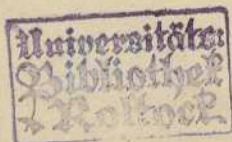 Universitäts:
Bibliothek
Rostock